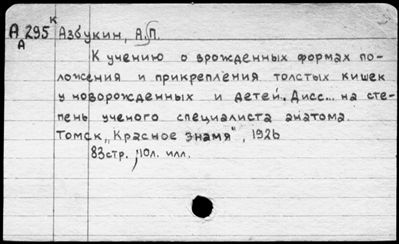 А 295 К Азбукин, А.П.
А
К учению о врожденных формах по-
ложения и прикрепления толстых кишек
у новорожденных и детей. Дисс... на сте-
пень ученого специалиста анатома.
Томск, "Красное знамя", 1926
83стр., 10л. илл.